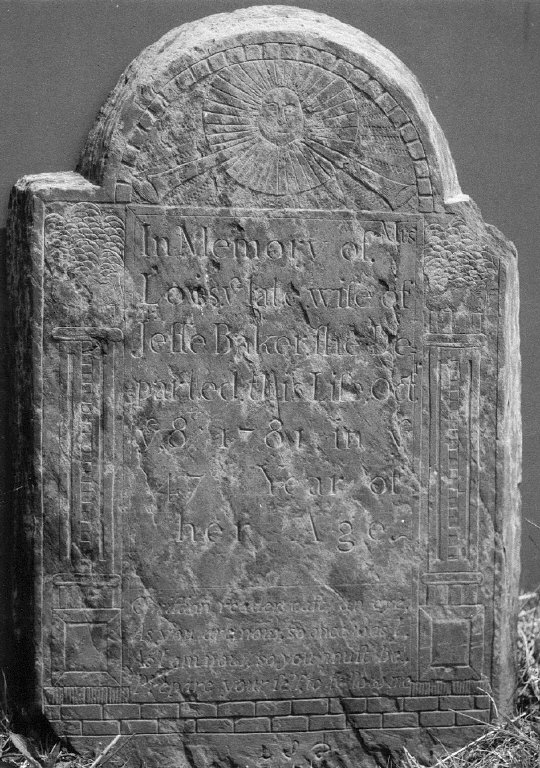 In Memory of Mrs
late wife of
Jeſſe Baker ſhe De-
parted this Life Oct
yͤ 8 1781 in yͤ
47 Year of
her Age
reader caſt an eye,
As you are now, so once was I,
As I am now, so you muſt be,
Prepare your ſelf to follow me